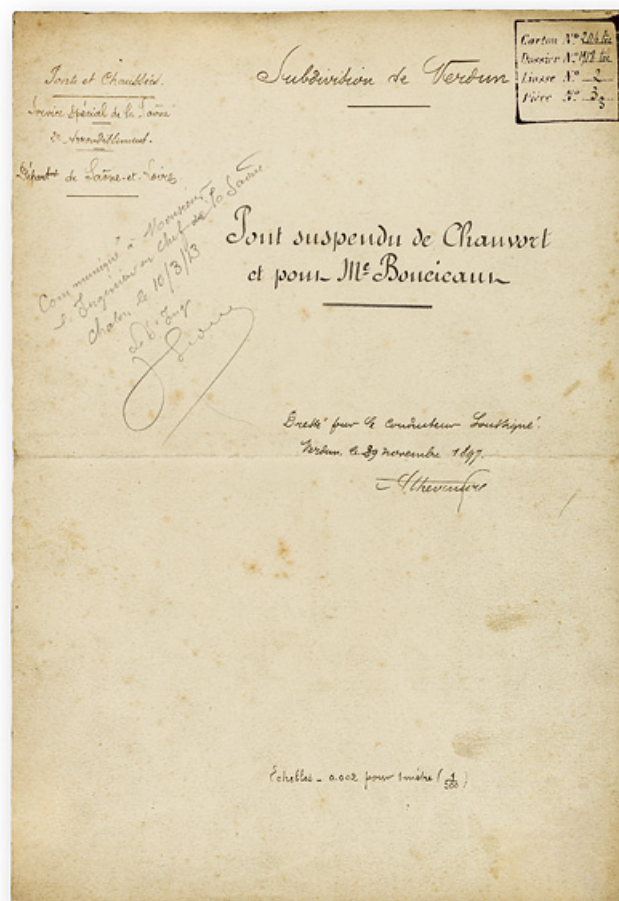 Ponts et Chaussées.
Service spécial de la Saône
2e Arrondissement.
Départnt de Saône-et-Loire.
Subdivision de Verdun
Carton No 204 bis
Dossier No
Liasse No 2
Pièce No 33
Communiqué à Monsieur
l'Ingénieur en Chef de la Saône
Chalon, le 10/3/13
Pont suspendu de Chauvort
et pont Me Boucicaut
Dressé par le Conducteur soussigné.
Verdun, le 29 novembre 1897.
Echelles _ 0.002 pour 1 mètre (1/500)